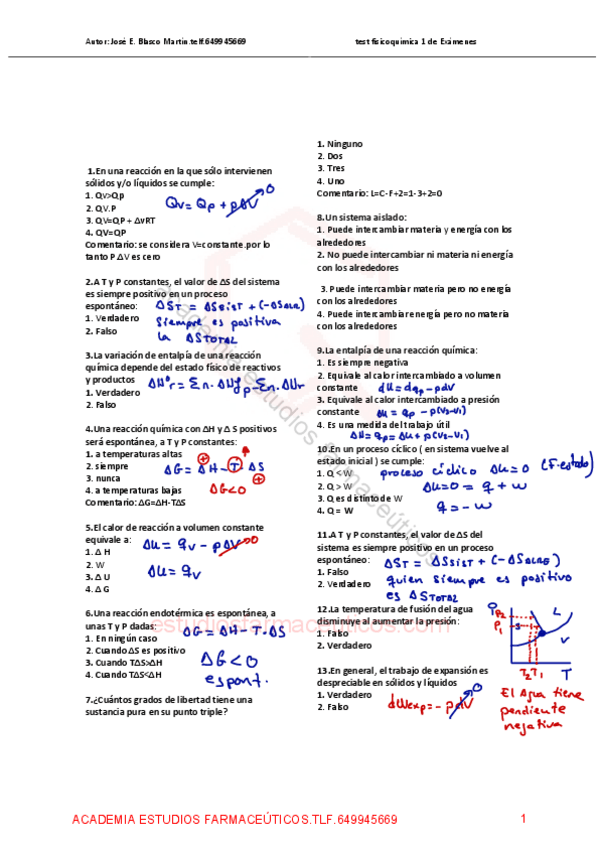 Autor: José E. Blasco Martin.telf.649945669 test fisicoquimica 1 de Exámenes
1.En una reacción en la que sólo intervienen
sólidos y/o líquidos se cumple:
1. Qv>Qp
2. QV.P
3. QV=QP + ΔvRT
4. QV=QP
Qv = Qp + pΔV 0
Comentario: se considera V=constante.por lo
tanto P ΔV es cero
2.A T y P constantes, el valor de ΔS del sistema
es siempre positivo en un proceso
espontáneo:
1. Verdadero
2. Falso
ΔST = ΔSSIST + (-ΔSALR)
Siempre es positiva
la ΔSTOTAL
3.La variación de entalpía de una reacción
química depende del estado físico de reactivos
y productos
1. Verdadero
2. Falso
4.Una reacción química con ΔH y Δ S positivos
será espontánea, a T y P constantes:
1. a temperaturas altas
2. siempre
3. nunca
4. a temperaturas bajas
ΔG = ΔH - T ΔS
ΔG<0
Comentario: ΔG=ΔH-TΔS
5.El calor de reacción a volumen constante
equivale a:
1. Δ H
2. W
3. Δ U
4. Δ G
Δu = qv - pΔV 0
Δu = qv
6.Una reacción endotérmica es espontánea, a
unas T y P dadas:
1. En ningún caso
2. Cuando ΔS es positivo
3. Cuando TΔS>ΔH
4. Cuando TΔS<ΔH
ΔG = ΔH - T·ΔS
ΔG<0
espont.
7.¿Cuántos grados de libertad tiene una
sustancia pura en su punto triple?
1. Ninguno
2. Dos
3. Tres
4. Uno
Comentario: L=C-F+2=1-3+2=0
8.Un sistema aislado:
1. Puede intercambiar materia y energía con los
alrededores
2. No puede intercambiar ni materia ni energía
con los alrededores
3. Puede intercambiar materia pero no energía
con los alrededores
4. Puede intercambiar energía pero no materia
con los alrededores
9.La entalpía de una reacción química:
1. Es siempre negativa
2. Equivale al calor intercambiado a volumen
constante
du = dqp - pdV
3. Equivale al calor intercambiado a presión
constante
Δu = qp - p(V2-V1)
4. Es una medida del trabajo útil
ΔH = qp = Δu + p(V2-V1)
10.En un proceso cíclico ( en sistema vuelve al
estado inicial ) se cumple:
1. Q < W
2. Q > W
3. Q es distinto de W
4. Q = W
proceso cíclico Δu = 0 (F.estado)
Δu = 0 = q + w
q = -w
11.A T y P constantes, el valor de ΔS del
sistema es siempre positivo en un proceso
espontáneo:
1. Falso
2. Verdadero
ΔST = ΔSSIST + (-ΔSALRE)
quien siempre es positivo
es ΔSTOTAL
12.La temperatura de fusión del agua
disminuye al aumentar la presión:
1. Falso
2. Verdadero
P2
P1
S
L
V
T2 T1 T
El Agua tiene
pendiente
negativa
13.En general, el trabajo de expansión es
despreciable en sólidos y líquidos
1. Verdadero
2. Falso
dWexp = - pdV 0
academia estudios farmaceúticos
estudiosfarmaceuticos.com
ACADEMIA ESTUDIOS FARMACEÚTICOS.TLF.649945669 1